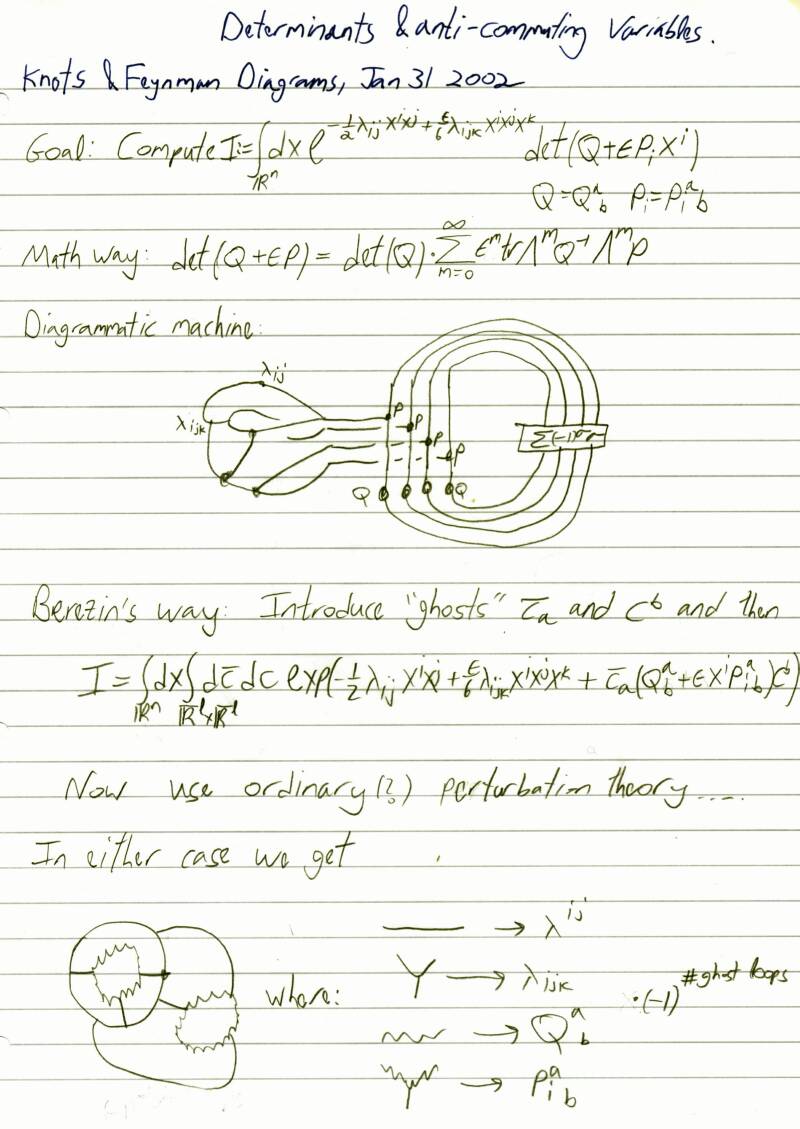 Determinants & anti-commuting Variables.
Knots & Feynman Diagrams, Jan 31 2002
Goal: Compute I := ∫_{ℝⁿ} dx e^{-½λ_{ij}x^i x^j + ε/6 λ_{ijk}x^i x^j x^k} det(Q+εP_i x^i)
Q = Q^a_b P_i = P_i^a_b
Math way: det(Q+εP) = det(Q)·∑_{m=0}^{∞} ε^m tr Λ^m Q^{-1} Λ^m P
Diagrammatic machine:
λ_{ij}
λ_{ijk}
P
P
P
P
Q Q
Berezin's way: Introduce "ghosts" c̄_a and c^b and then
I = ∫_{ℝⁿ} dx ∫ dc̄ dc exp(-½λ_{ij}x^i x^j + ε/6 λ_{ijk}x^i x^j x^k + c̄_a(Q^a_b + εx^i P_i^a_b)c^b)
Now use ordinary(?) perturbation theory....
In either case we get
→ λ^{ij}
where: → λ_{ijk} ·(-1)^{#ghost loops}
→ Q^a_b
→ P_i^a_b